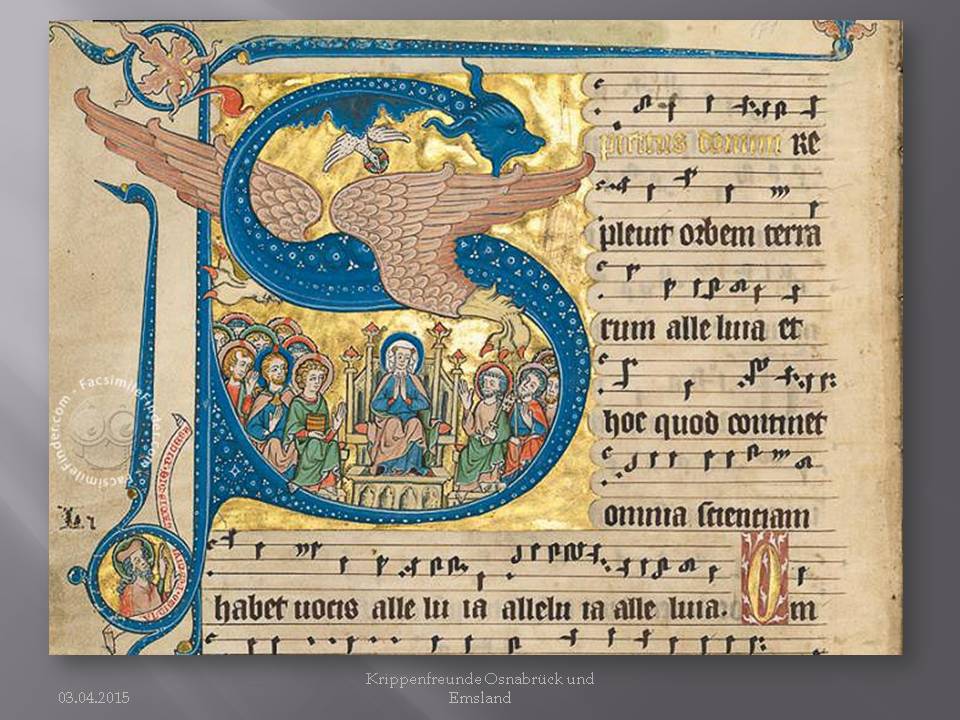 piritus domini RE
pleuit orbem terra
rum alleluia et
hoc quod continet
omnia scientiam
habet uocis alle lu ia allelu ia alle luia. Om
FacsimileFinder.com · FacsimileFinder.com
03.04.2015
Krippenfreunde Osnabrück und
Emsland